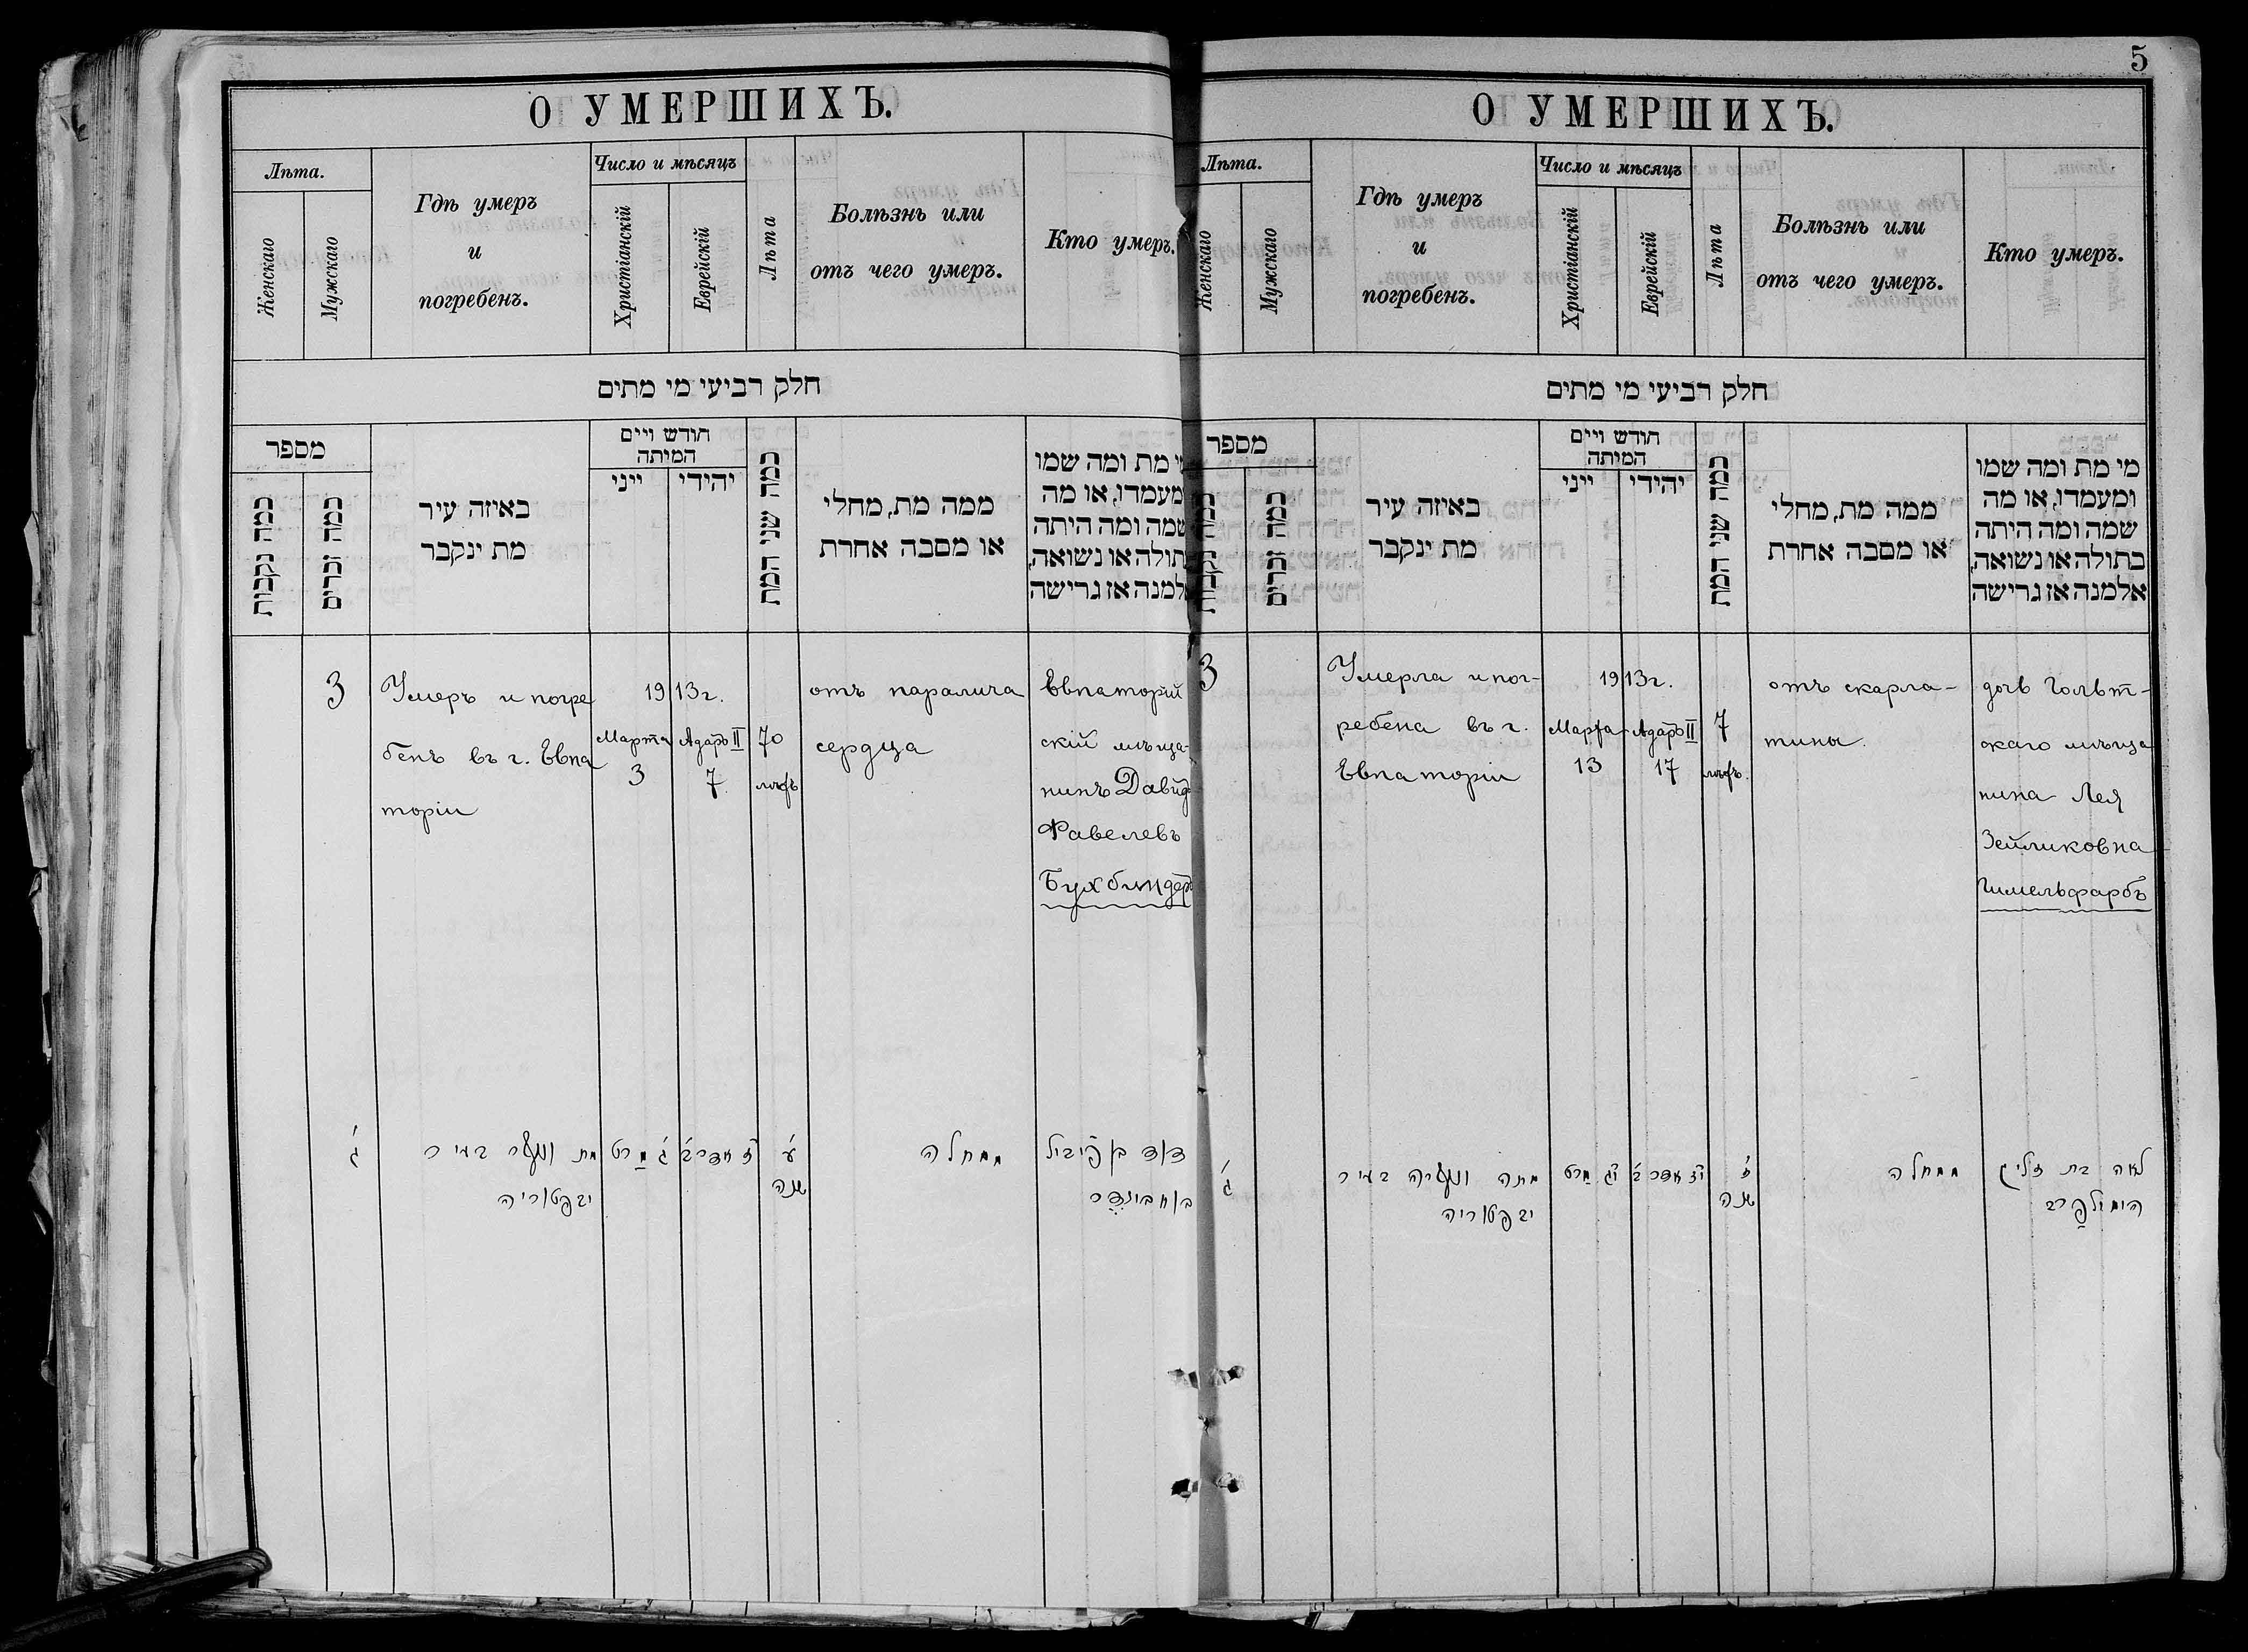 О УМЕРШИХЪ.
Лѣта.
Женскаго
Мужскаго
Гдѣ умеръ
и
погребенъ.
Число и мѣсяцъ
Христіанскій
Еврейскій
Лѣта
Болѣзнь или
отъ чего умеръ.
Кто умеръ.
חלק רביעי מי מתים
מספר
כמה נקבות
כמה זכרים
באיזה עיר
מת ינקבר
חודש ויים
המיתה
ייני
יהידי
כמה שני המת
ממה מת, מחלי
או מסבה אחרת
מי מת ומה שמו
ומעמדו, או מה
שמה ומה היתה
בתולה או נשואה,
אלמנה אז גרישה
3
Умеръ и погре
бенъ въ г. Евпа
торіи
1913 г.
Марта
3
Адаръ II
7
70
лѣтъ
отъ паралича
сердца
Евпаторій
скій мѣща-
нинъ Давидъ
Фавелевъ
Бухбиндеръ
ג׳
מת ונקבר בעיר
יבפטוריה
ג׳ מרט
ז׳ אדר ב׳
ע׳
שנה
ממחלה
דוד בן פייביל
בוחבינדר
5
О УМЕРШИХЪ.
Лѣта.
Женскаго
Мужскаго
Гдѣ умеръ
и
погребенъ.
Число и мѣсяцъ
Христіанскій
Еврейскій
Лѣта
Болѣзнь или
отъ чего умеръ.
Кто умеръ.
חלק רביעי מי מתים
מספר
כמה נקבות
כמה זכרים
באיזה עיר
מת ינקבר
חודש ויים
המיתה
ייני
יהידי
כמה שני המת
ממה מת, מחלי
או מסבה אחרת
מי מת ומה שמו
ומעמדו, או מה
שמה ומה היתה
בתולה או נשואה,
אלמנה אז גרישה
3
Умерла и пог-
ребена въ г.
Евпаторіи
1913 г.
Марта
13
Адаръ II
17
7
лѣтъ.
отъ скарла-
тины.
дочь Гольт-
скаго мѣща
нина Лея
Зейликовна
Гимельфарбъ
ג׳
מתה ונקברה בעיר
יבפטוריה
יג מרט
יז אדר ב׳
ז׳
שנה
ממחלה
לאה בת זליג
הימילפרב